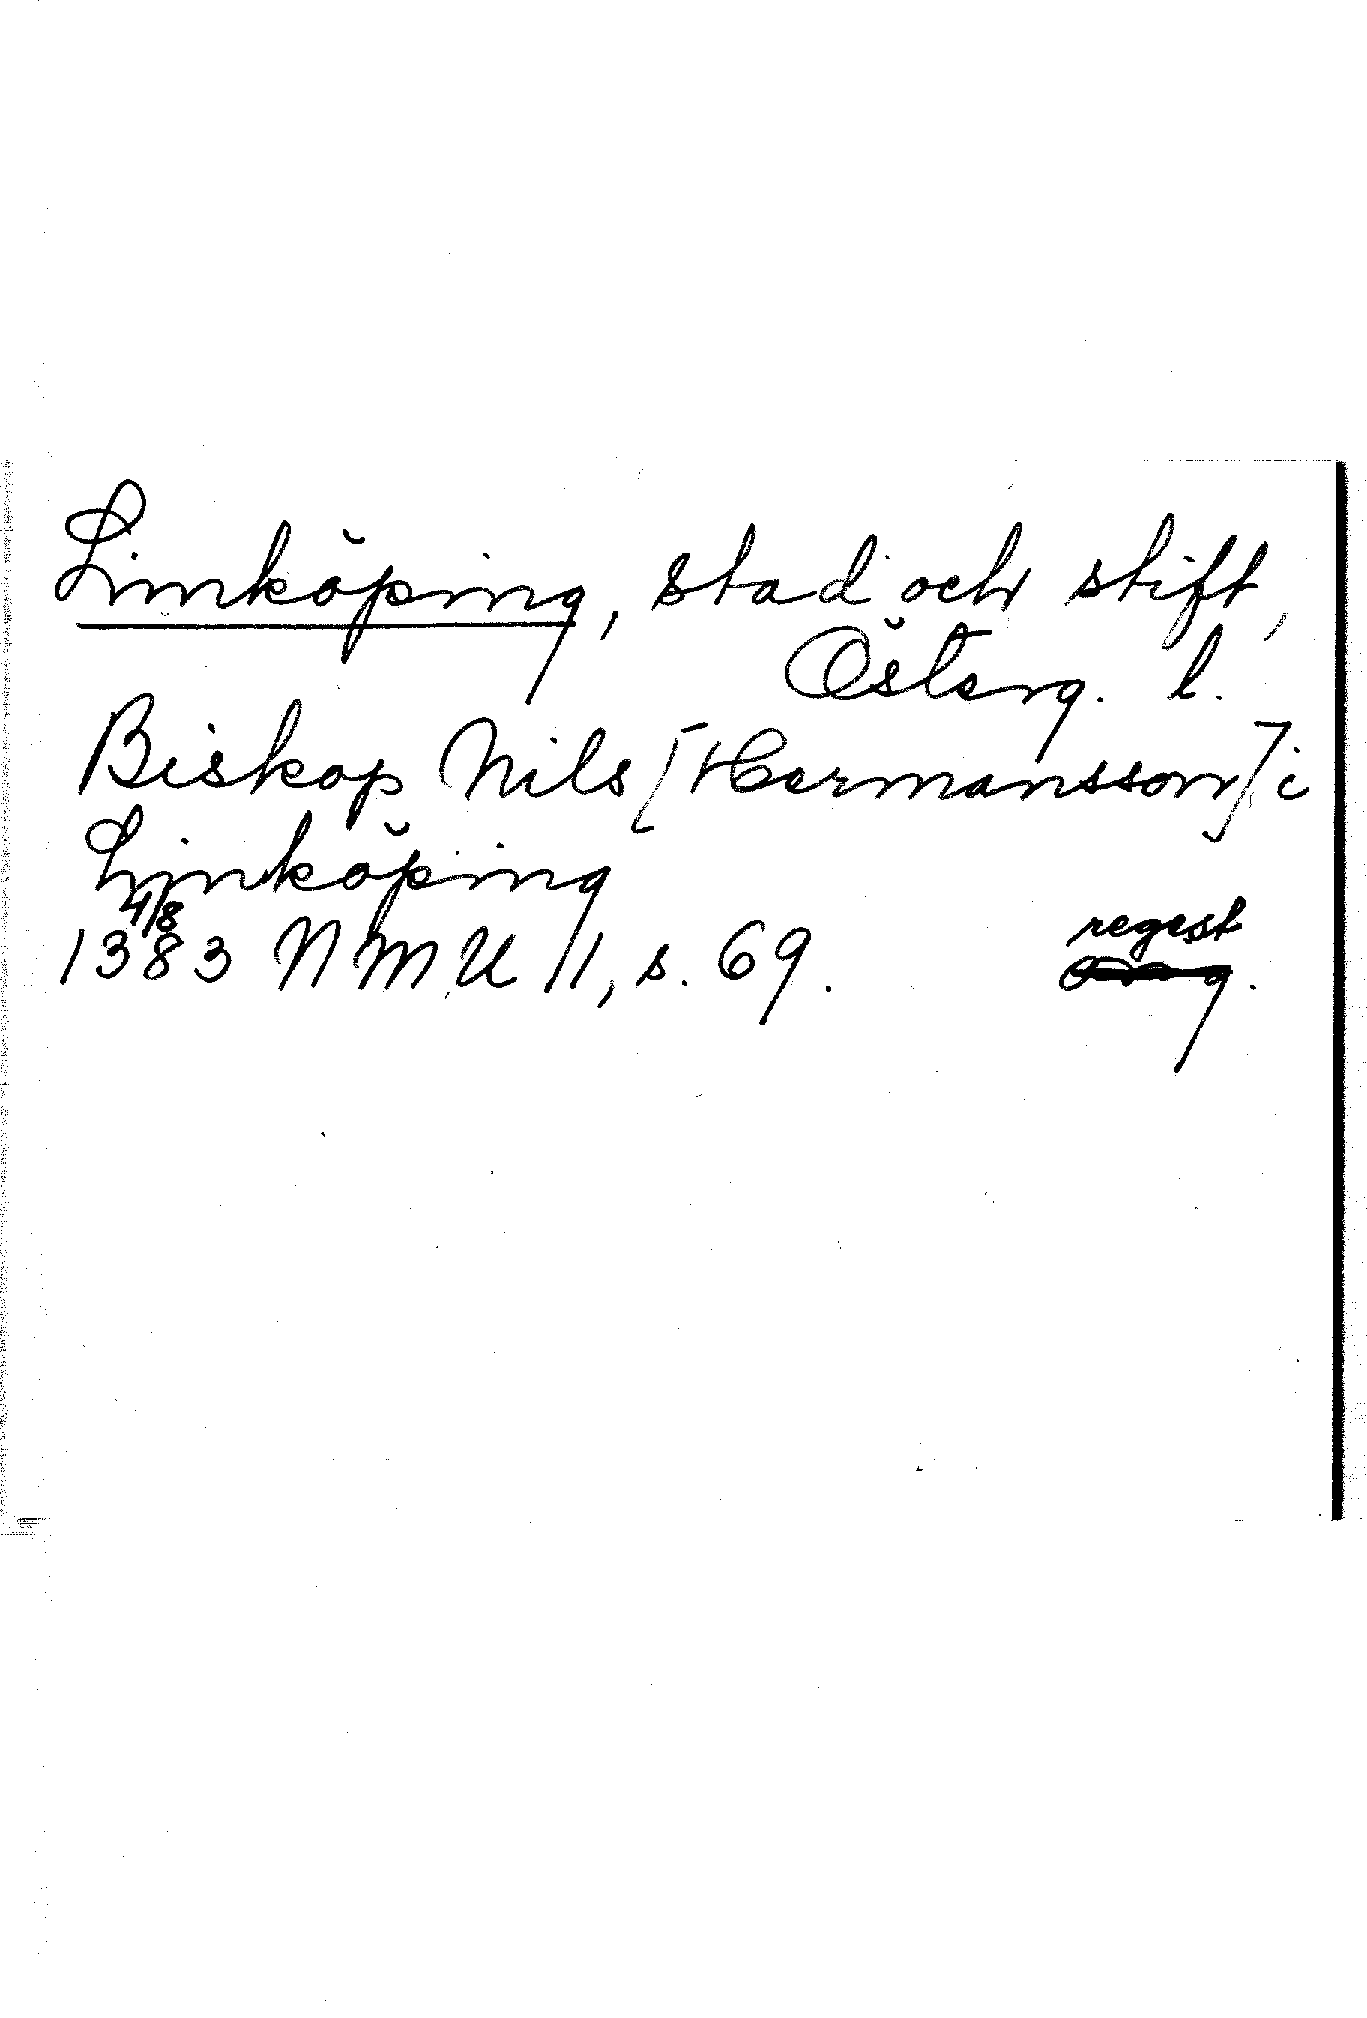 Linköping, stad och stift,
Österg. l.
Biskop Nils [Hermansson] i
Linköping
4/8
1383 NMU II, s. 69.
regest